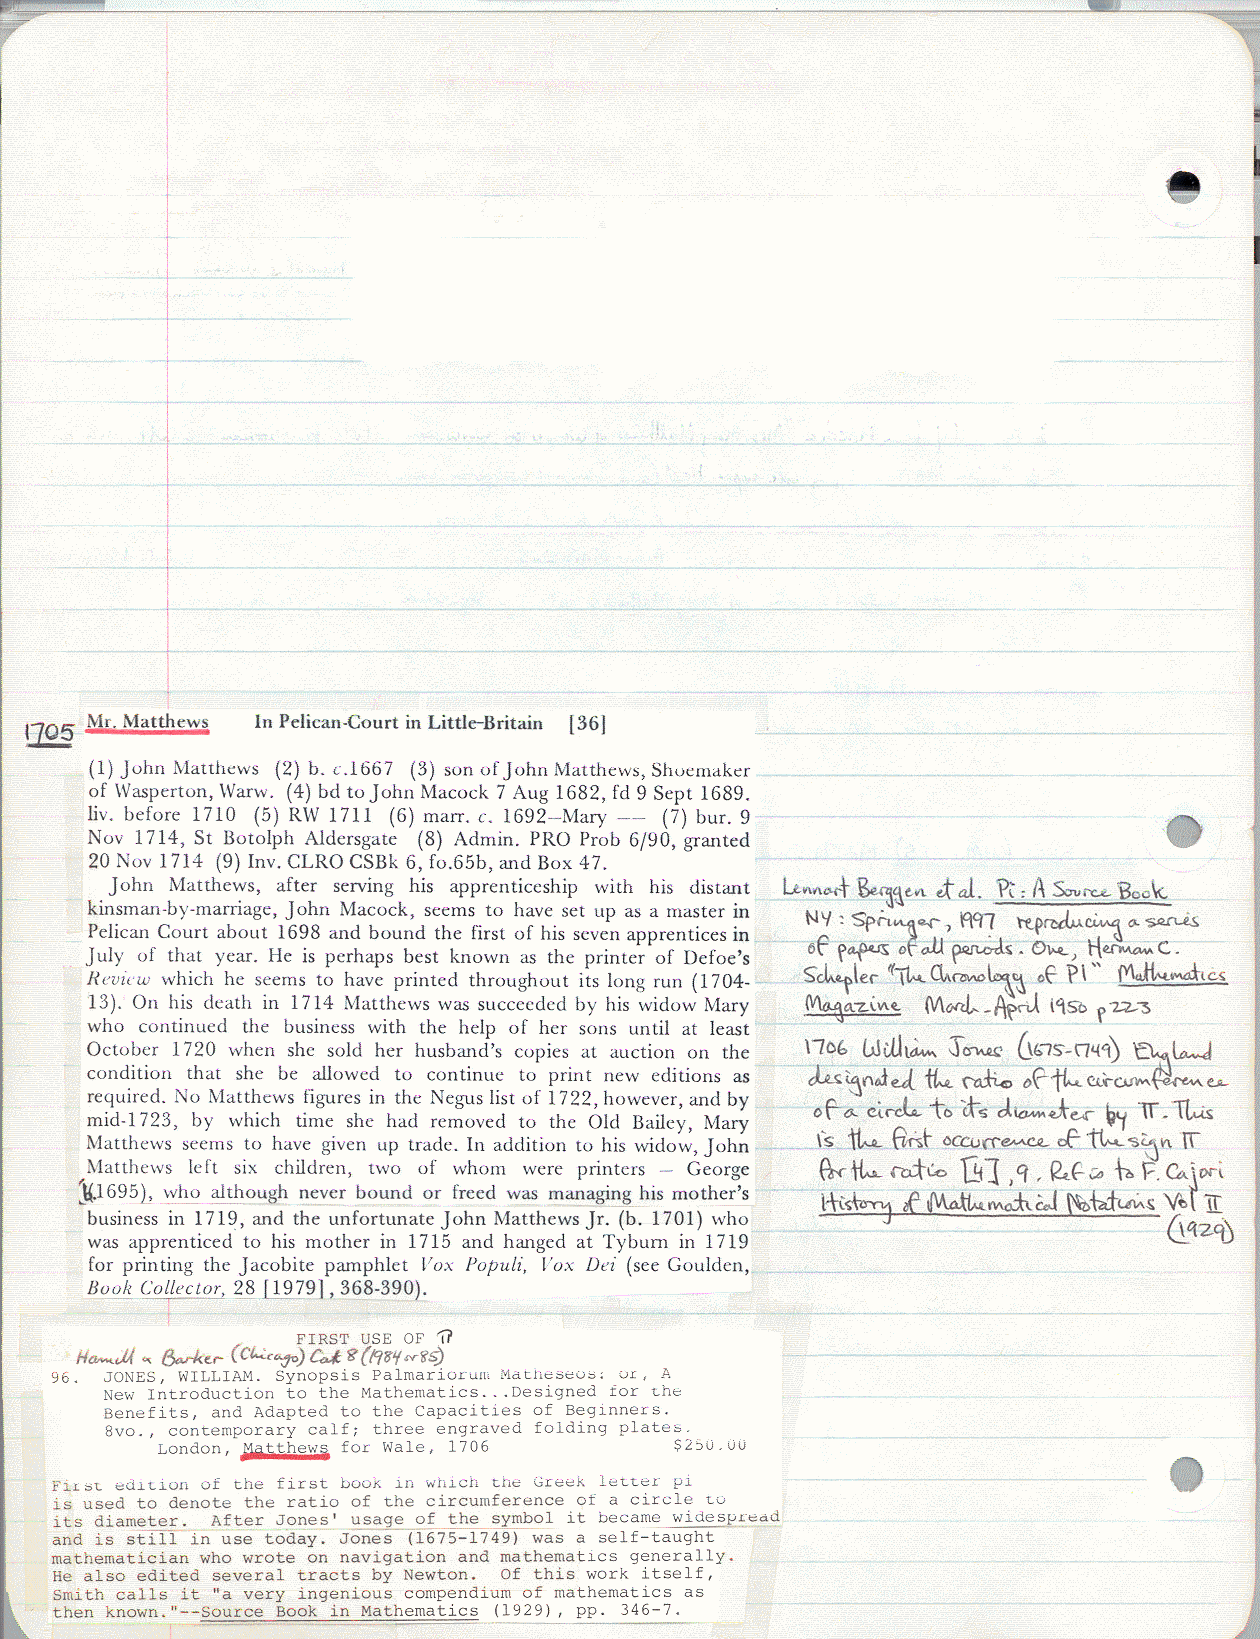 1705 Mr. Matthews In Pelican-Court in Little-Britain [36]
(1) John Matthews (2) b. c.1667 (3) son of John Matthews, Shoemaker
of Wasperton, Warw. (4) bd to John Macock 7 Aug 1682, fd 9 Sept 1689.
liv. before 1710 (5) RW 1711 (6) marr. c. 1692—Mary —— (7) bur. 9
Nov 1714, St Botolph Aldersgate (8) Admin. PRO Prob 6/90, granted
20 Nov 1714 (9) Inv. CLRO CSBk 6, fo.65b, and Box 47.
John Matthews, after serving his apprenticeship with his distant
kinsman-by-marriage, John Macock, seems to have set up as a master in
Pelican Court about 1698 and bound the first of his seven apprentices in
July of that year. He is perhaps best known as the printer of Defoe's
Review which he seems to have printed throughout its long run (1704-
13). On his death in 1714 Matthews was succeeded by his widow Mary
who continued the business with the help of her sons until at least
October 1720 when she sold her husband's copies at auction on the
condition that she be allowed to continue to print new editions as
required. No Matthews figures in the Negus list of 1722, however, and by
mid-1723, by which time she had removed to the Old Bailey, Mary
Matthews seems to have given up trade. In addition to his widow, John
Matthews left six children, two of whom were printers — George
(b.1695), who although never bound or freed was managing his mother's
business in 1719, and the unfortunate John Matthews Jr. (b. 1701) who
was apprenticed to his mother in 1715 and hanged at Tyburn in 1719
for printing the Jacobite pamphlet Vox Populi, Vox Dei (see Goulden,
Book Collector, 28 [1979], 368-390).
Lennart Berggen et al. Pi: A Source Book
NY: Springer, 1997 reproducing a series
of papers of all periods. One, Herman C.
Schepler "The Chronology of PI" Mathematics
Magazine March-April 1950 p223
1706 William Jones (1675-1749) England
designated the ratio of the circumference
of a circle to its diameter by π. This
is the first occurrence of the sign π
for the ratio [4], 9. Ref is to F. Cajori
History of Mathematical Notations Vol II
(1929)
FIRST USE OF π
Hamill & Barker (Chicago) Cat 8 (1984 or 85)
96. JONES, WILLIAM. Synopsis Palmariorum Matheseos: or, A
New Introduction to the Mathematics...Designed for the
Benefits, and Adapted to the Capacities of Beginners.
8vo., contemporary calf; three engraved folding plates.
London, Matthews for Wale, 1706 $250.00
First edition of the first book in which the Greek letter pi
is used to denote the ratio of the circumference of a circle to
its diameter. After Jones' usage of the symbol it became widespread
and is still in use today. Jones (1675-1749) was a self-taught
mathematician who wrote on navigation and mathematics generally.
He also edited several tracts by Newton. Of this work itself,
Smith calls it "a very ingenious compendium of mathematics as
then known."--Source Book in Mathematics (1929), pp. 346-7.